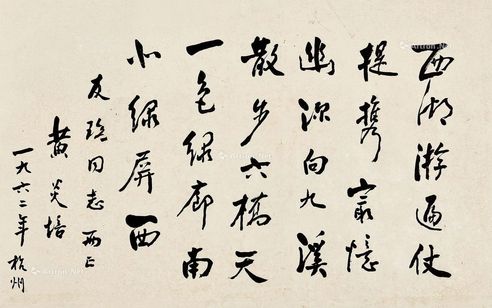 西湖游遍仗
提携最憶
幽深向九溪
散步六橋天
一色绿廊南
小绿屏西
友同志正
黄炎培
一九六二年杭州